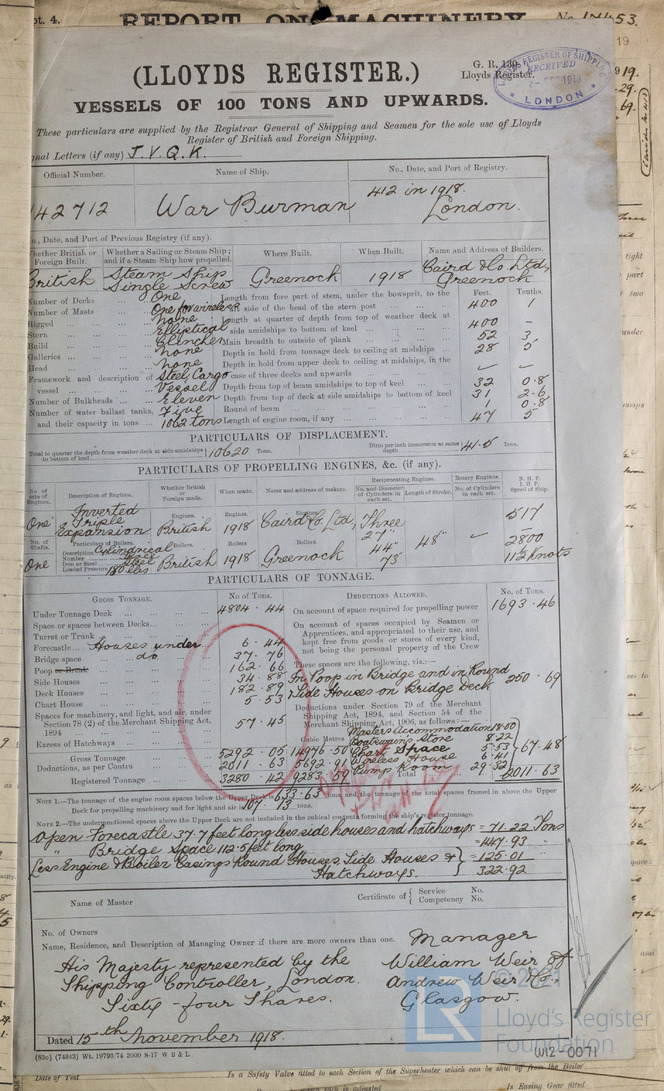 pt. 4.
REPORT ON MACHINERY
(LLOYDS REGISTER.)
G. R. 139.
Lloyds Register.
LLOYDS REGISTER OF SHIPPING
RECEIVED
LONDON
VESSELS OF 100 TONS AND UPWARDS.
These particulars are supplied by the Registrar General of Shipping and Seamen for the sole use of Lloyds
Register of British and Foreign Shipping.
nal Letters (if any) J.V.Q.K.
Official Number. Name of Ship. No., Date, and Port of Registry.
42712 War Burman 412 in 1918. London.
o., Date, and Port of Previous Registry (if any).
hether British or Foreign Built. Whether a Sailing or Steam Ship; and if a Steam Ship how propelled. Where Built. When Built. Name and Address of Builders.
British Steam Ship Single Screw Greenock 1918 Caird & Co Ltd, Greenock
Feet. Tenths.
Number of Decks One Length from fore part of stem, under the bowsprit, to the aft side of the head of the stern post 400 1
Number of Masts One for wireless
Rigged none Length at quarter of depth from top of weather deck at side amidships to bottom of keel 400 –
Stern Elliptical
Build Clincher Main breadth to outside of plank 52 3
Galleries none Depth in hold from tonnage deck to ceiling at midships 28 5
Head none Depth in hold from upper deck to ceiling at midships, in the case of three decks and upwards
Framework and description of vessel Steel, Cargo Vessel Depth from top of beam amidships to top of keel 32 0.8
Number of Bulkheads Eleven Depth from top of deck at side amidships to bottom of keel 31 2.6
Number of water ballast tanks, Five Round of beam 1 0.8
and their capacity in tons 1062 tons Length of engine room, if any 47 5
PARTICULARS OF DISPLACEMENT.
Total to quarter the depth from weather deck at side amidships to bottom of keel 10620 Tons. Ditto per inch immersion at same depth 41.5 Tons.
PARTICULARS OF PROPELLING ENGINES, &c. (if any).
No. of sets of Engines. Description of Engines. Whether British or Foreign made. When made. Name and address of makers. Reciprocating Engines. Rotary Engines. N. H. P. I. H. P. Speed of Ship.
No. and Diameter of Cylinders in each set. Length of Stroke. No. of Cylinders in each set.
Engines. Engines. Engines.
One Inverted Triple Expansion British 1918 Caird & Co. Ltd, Three 27" 44" 73" 48" 517
No. of Shafts. Particulars of Boilers. Boilers. Boilers. Boilers. 2800
One Description Cylindrical Number Iron or Steel Steel Loaded Pressure 180 lbs British 1918 Greenock 11½ Knots
PARTICULARS OF TONNAGE.
GROSS TONNAGE. No. of Tons. DEDUCTIONS ALLOWED. No. of Tons.
Under Tonnage Deck 4804.44 On account of space required for propelling power 1693.46
Space or spaces between Decks
Turret or Trunk
On account of spaces occupied by Seamen or Apprentices, and appropriated to their use, and kept free from goods or stores of every kind, not being the personal property of the Crew
Forecastle Houses under 6.44
Bridge space do. 37.76
Poop or Break 162.66 These spaces are the following, viz.:—
Side Houses 34.88 In Poop in Bridge and in Round
Deck Houses 182.89 & Side Houses on Bridge Deck 250.69
Chart House 5.53
Deductions under Section 79 of the Merchant Shipping Act, 1894, and Section 54 of the Merchant Shipping Act, 1906, as follows:—
Spaces for machinery, and light, and air, under Section 78 (2) of the Merchant Shipping Act, 1894 57.45
Excess of Hatchways
Cubic Metres
Masters Accommodation
Boatswain's Store 8.22
Chart Space 5.53
Wireless House 6.41
Pump Room 29.32
67.48
Gross Tonnage 5292.05 14976.50
Deductions, as per Contra 2011.63 5692.91
Registered Tonnage 3280.42 9283.59 Total 2011.63
NOTE 1.—The tonnage of the engine room spaces below the Upper Deck is 633.63 Tons, and the tonnage of the total spaces framed in above the Upper
Deck for propelling machinery and for light and air is 107.13 tons.
NOTE 2.—The undermentioned spaces above the Upper Deck are not included in the cubical contents forming the ship's register tonnage.
Open Forecastle 37.7 feet long less side houses and hatchways = 71.22 Tons
" Bridge Space 112.5 feet long = 447.93 "
Less Engine & Boiler Casings Round Houses Side Houses & Hatchways. = 125.01 "
322.92
Name of Master Certificate of Service No.
Competency No.
No. of Owners
Name, Residence, and Description of Managing Owner if there are more owners than one.
His Majesty represented by the
Shipping Controller, London.
Sixty-four Shares.
Manager
William Weir of
Andrew Weir & Co.,
Glasgow.
Dated 15th November 1918.
(83o) (74343) Wt. 19793/74 2000 8-17 W B & L
LR
Lloyd's Register
Foundation
W12-0071
Date of Test
Is a Safety Valve fitted to each Section of the Superheater which can be shut off from the Boiler